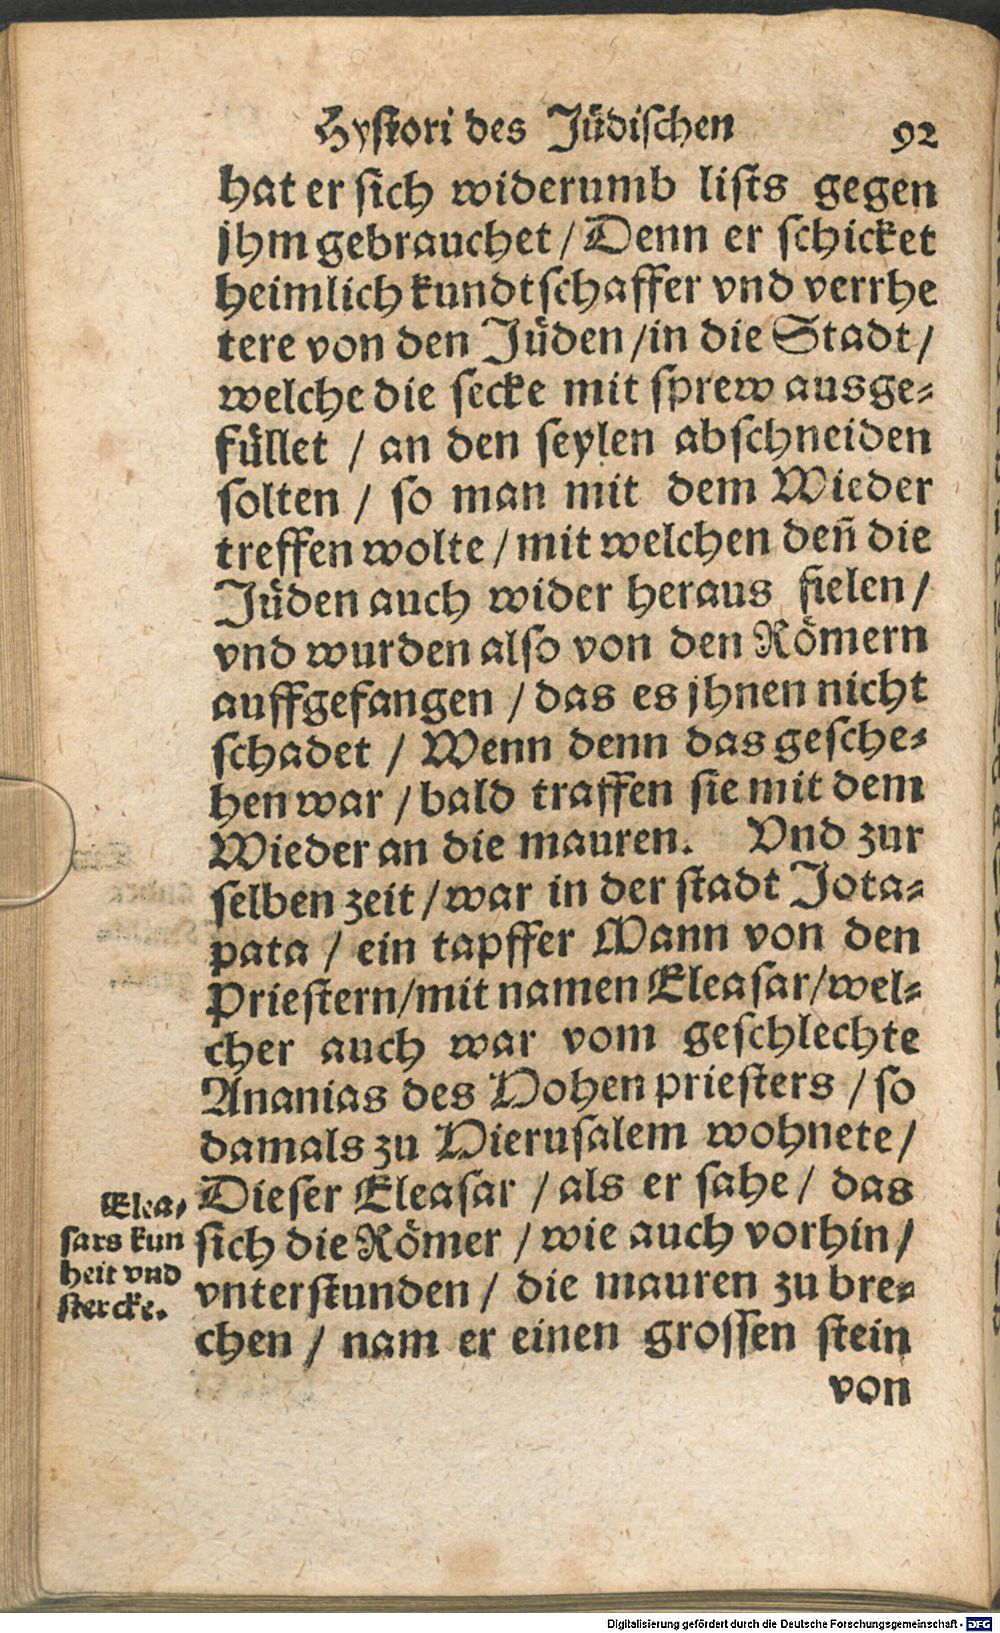 Hystori des Jüdischen 92
hat er sich widerumb lists gegen
jhm gebrauchet / Denn er schicket
heimlich kundtschaffer vnd verrhe
tere von den Jüden / in die Stadt /
welche die secke mit sprew ausge-
füllet / an den seylen abschneiden
solten / so man mit dem Wieder
treffen wolte / mit welchen deñ die
Jüden auch wider heraus fielen /
vnd wurden also von den Römern
auffgefangen / das es jhnen nicht
schadet / Wenn denn das gesche-
hen war / bald traffen sie mit dem
Wieder an die mauren. Vnd zur
selben zeit / war in der stadt Jota-
pata / ein tapffer Mann von den
Priestern / mit namen Eleasar / wel-
cher auch war vom geschlechte
Ananias des Hohen priesters / so
damals zu Hierusalem wohnete /
Dieser Eleasar / als er sahe / das
sich die Römer / wie auch vorhin /
vnterstunden / die mauren zu bre-
chen / nam er einen grossen stein
von
Elea-
sars kun
heit vnd
stercke.
Digitalisierung gefördert durch die Deutsche Forschungsgemeinschaft - DFG